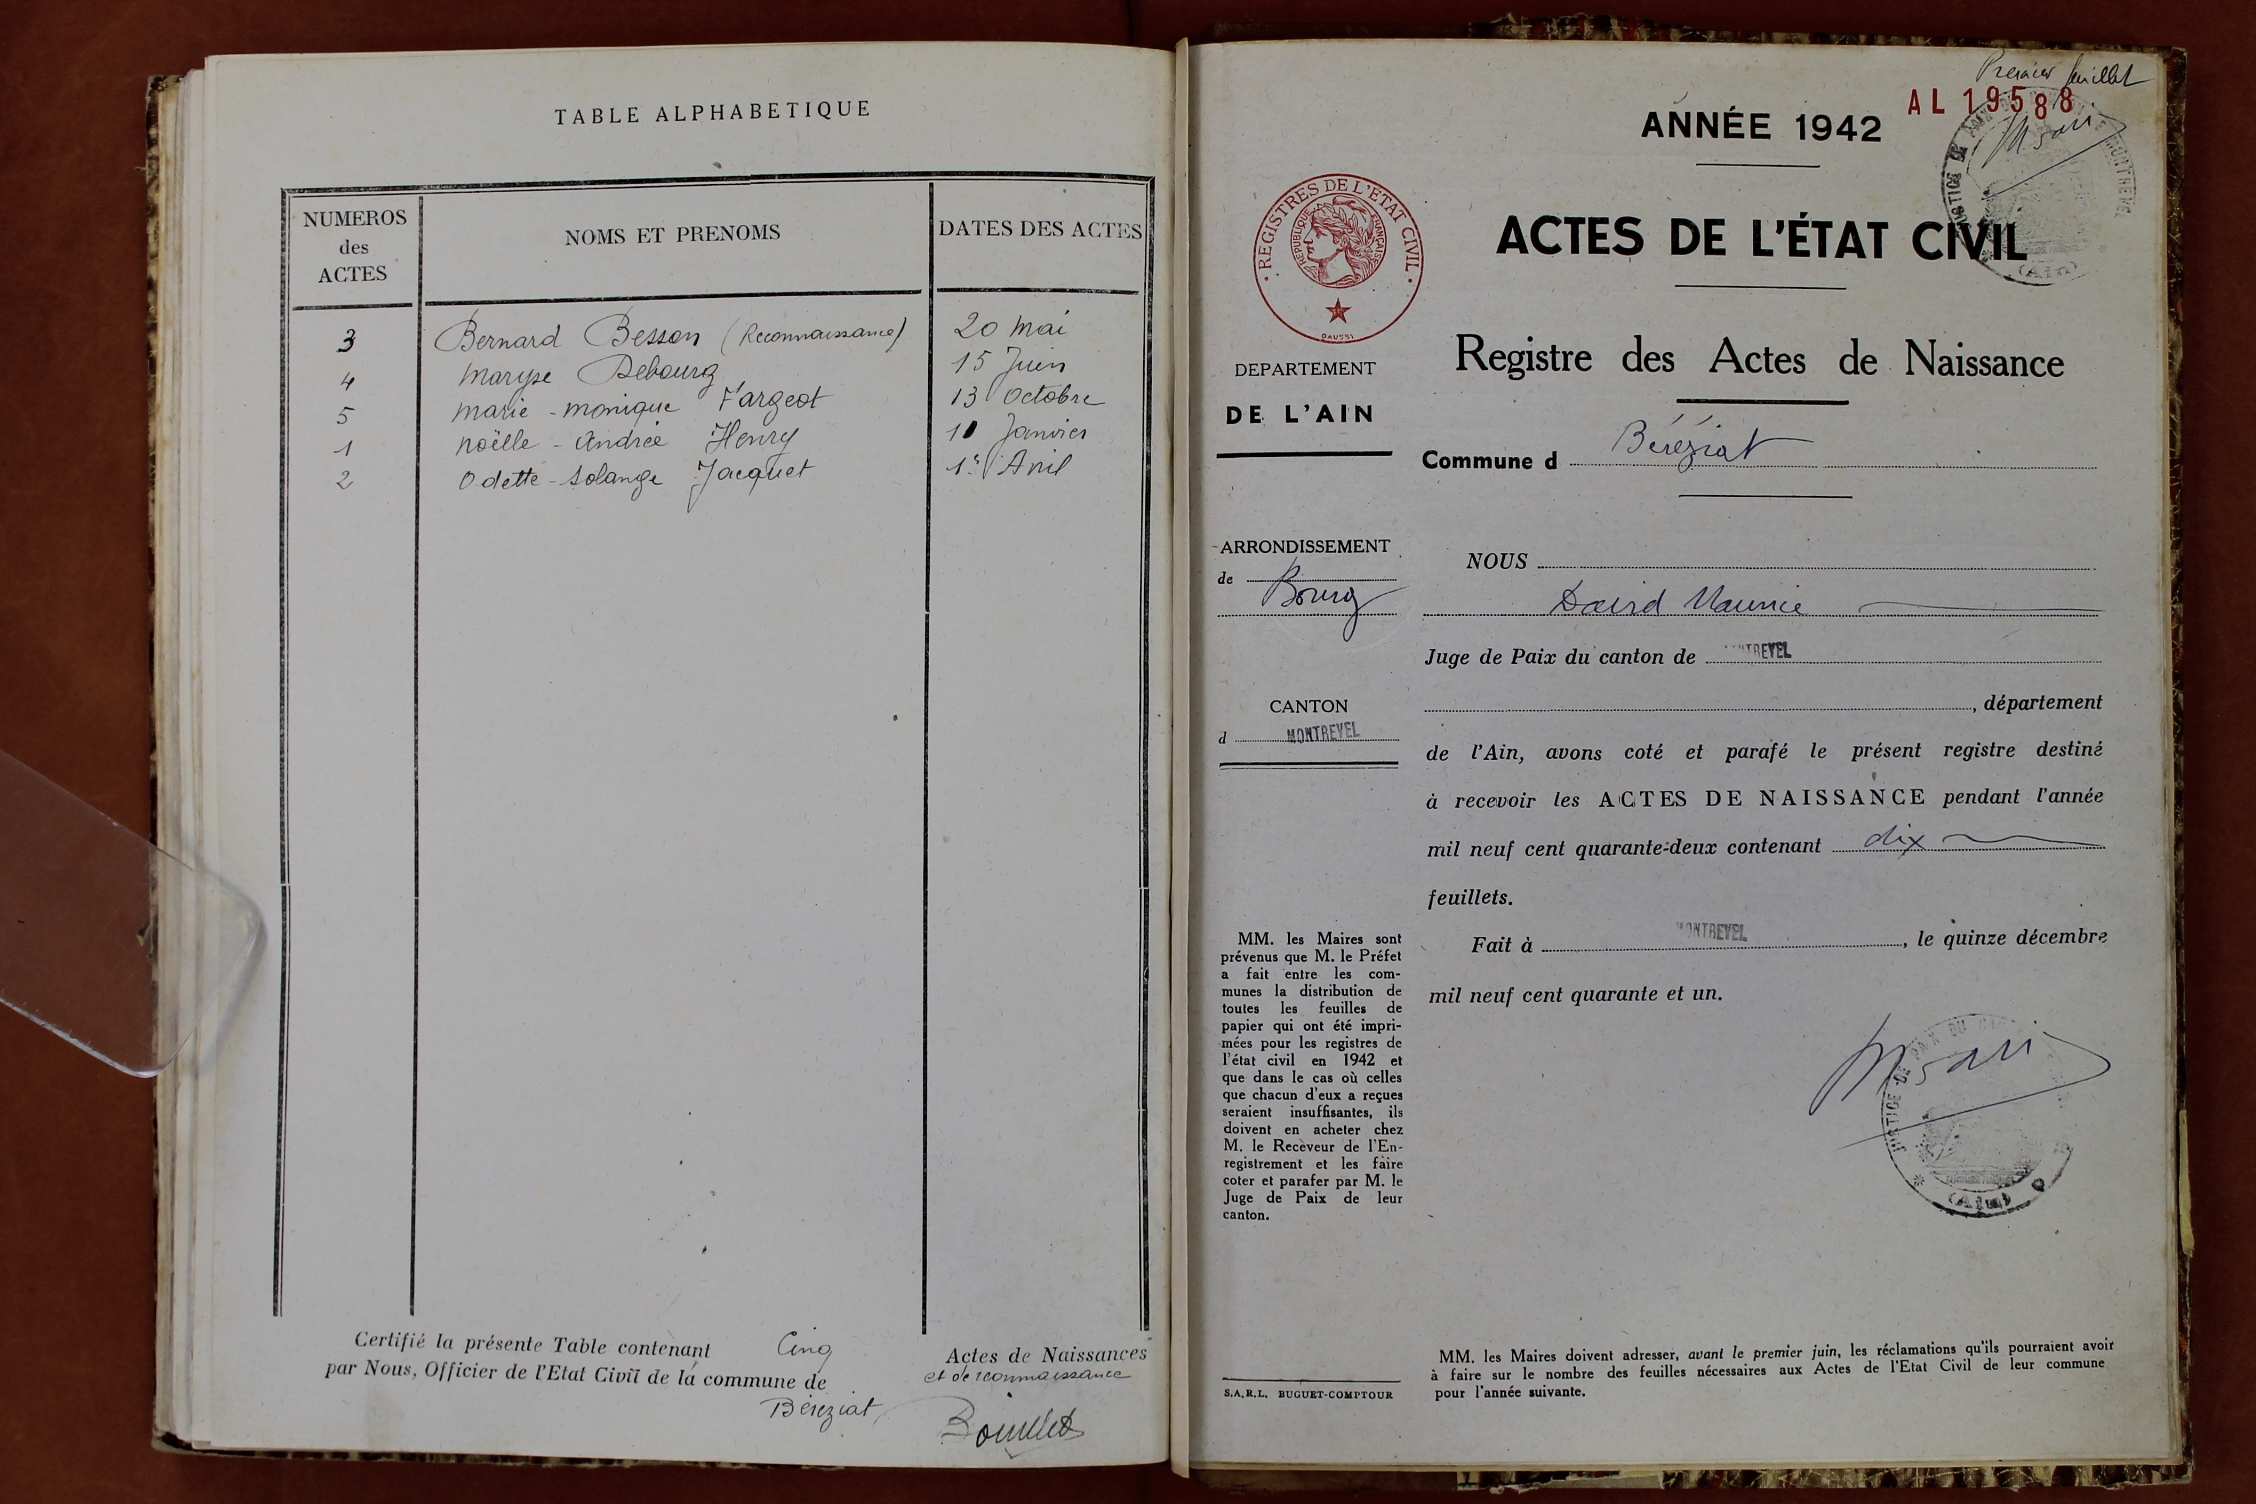 TABLE ALPHABETIQUE
NUMEROS
des
ACTES
NOMS ET PRENOMS
DATES DES ACTES
3 Bernard Besson (Reconnaissance) 20 mai
4 Maryse Debourg 15 Juin
5 Marie-Monique Fargeot 13 Octobre
1 Noëlle-Andrée Henry Janvier
2 Odette-Solange Jacquet 1er Avril
Certifié la présente Table contenant Cinq Actes de Naissances
et de reconnaissance
par Nous, Officier de l'Etat Civil de la commune de
Béréziat,
Premier feuillet
AL 19588
ANNÉE 1942
ACTES DE L'ÉTAT CIVIL
REGISTRES DE L'ETAT CIVIL
REPUBLIQUE FRANÇAISE
DAUSSI
(Ain)
Registre des Actes de Naissance
DEPARTEMENT
DE L'AIN
Commune d Béréziat
ARRONDISSEMENT
de Bourg
CANTON
d MONTREVEL
NOUS
David Maurice
Juge de Paix du canton de MONTREVEL
, département
de l'Ain, avons coté et parafé le présent registre destiné
à recevoir les ACTES DE NAISSANCE pendant l'année
mil neuf cent quarante-deux contenant dix
feuillets.
Fait à MONTREVEL, le quinze décembre
mil neuf cent quarante et un.
JUSTICE DE PAIX DU
(Ain)
MM. les Maires sont
prévenus que M. le Préfet
a fait entre les com-
munes la distribution de
toutes les feuilles de
papier qui ont été impri-
mées pour les registres de
l'état civil en 1942 et
que dans le cas où celles
que chacun d'eux a reçues
seraient insuffisantes, ils
doivent en acheter chez
M. le Receveur de l'En-
registrement et les faire
coter et parafer par M. le
Juge de Paix de leur
canton.
S.A.R.L. BUGUET-COMPTOUR
MM. les Maires doivent adresser, avant le premier juin, les réclamations qu'ils pourraient avoir
à faire sur le nombre des feuilles nécessaires aux Actes de l'Etat Civil de leur commune
pour l'année suivante.